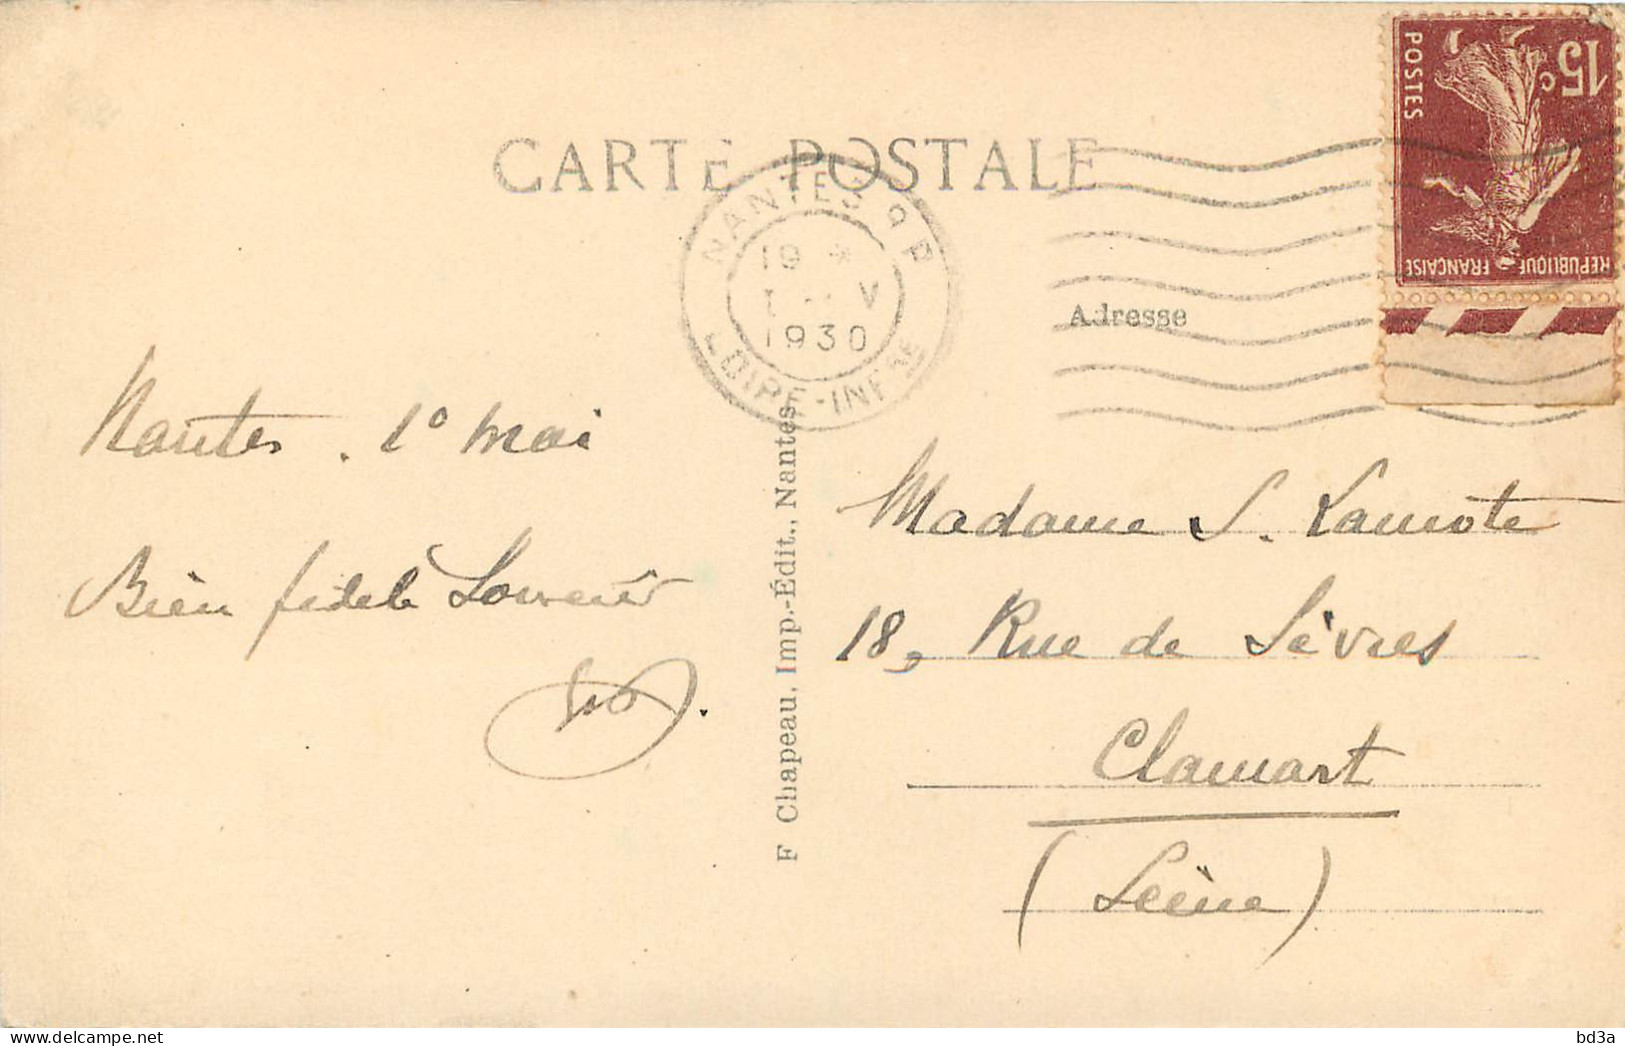 CARTE POSTALE
15c
POSTES
REPUBLIQUE FRANCAISE
NANTES R.P.
19 *
1 - V
1930
LOIRE-INFRE
Adresse
Nantes. 1º mai
Bien fidèle Souvenir
F Chapeau, Imp.-Édit., Nantes
Madame S. Lamote
18, Rue de Sèvres
Clamart
(Seine)
bd3a